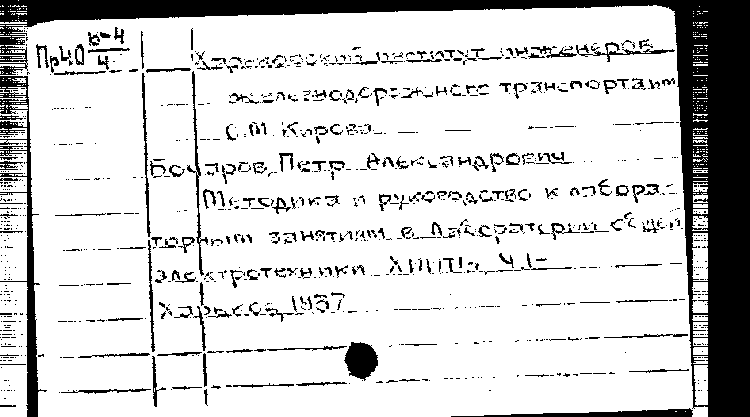 Пр40 6-4/4
Харьковский институт инженеров
железнодорожного транспорта им
С.М. Кирова
Бочаров, Петр Александрович
Методика и руководство к лабора-
торным занятиям в Лаборатории общей
электротехники ХИИТ'а, Ч.1-
Харьков, 1937